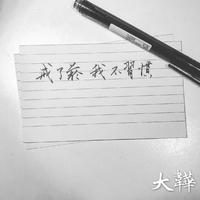 戒了菸 我不習慣
大